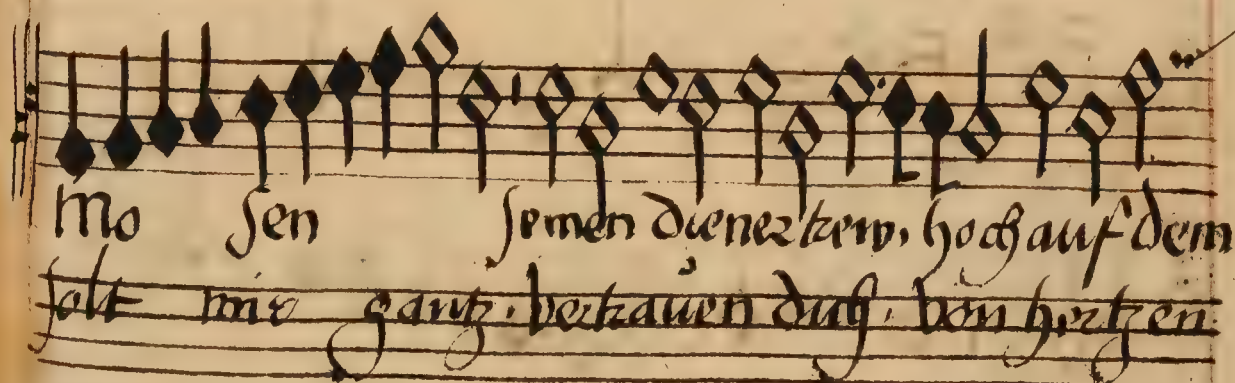 Mo sen seinen diener trew, hoch auf dem
solt mir gantz vertrauen dich, von hertzen